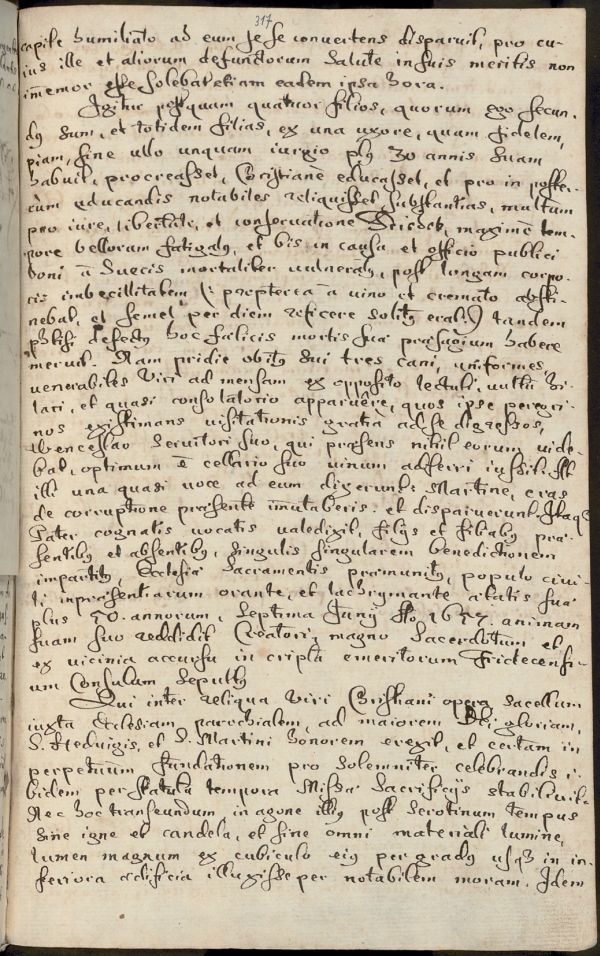 317
capite humiliato ad eum sese convertens disparuit, pro cu-
ius ille et aliorum defunctorum salute in suis meritis non
im̄emor esse solebat etiam eadem ipsa hora.
Igitur postquam quatuor filios, quorum ego secun-
dq sum, et totidem filias, ex una uxore, quam fidelem,
piam, sine ullo unquam iurgio plq 30 annis suam
habuit, procreasset, Christiane educasset, et pro in poste-
rum educandis notabiles reliquisset substantias, multum
pro iure, libertate, et conservatione maximè tem-
pore bellorum fatigatq, et bis in causa et officio publici
boni à Suecis mortaliter vulneratq, post longam corpo-
ris imbecillitatem (: propterea à vino et cremato absti-
nebat, et semel per diem reficere solitq erat :) tandem
defectq hoc fælicis mortis suæ præsagium habere
meruit. Nam pridie obitq sui tres cani, uniformes
venerabiles viri ad mensam ex opposito lectuli, vultu hi-
lari, et quasi consolatorio apparuêre, quos ipse peregri-
nos existimans visitationis gratiâ ad se digressos,
Wenceslao servitori suo, qui præsens nihil eorum vide-
bat, optimum è cellario suo vinum adferri iussit. Ast
illi una quasi voce ad eum dixerunt: Martine, cras
de corruptione præsente im̄utaberis. et disparuerunt. Itaq
Pater cognatis vocatis valedixit, filijs et filiabq præ-
sentibq et absentibq, singulis singularem benedictionem
impartitq, Ecclesiæ Sacramentis præmunitq, populo civi-
li inpræsentiarum orante, et lachrymante ætatis suæ
plus 50. annorum, Septima Junij Ao 1657. animam
suam suo reddidit Creatori, magno Sacerdotum et
ex vicinia accursu in criptâ emeritorum Fridecensi-
um Consulum sepultq
Qui inter reliqua viri Christiani opera Sacellum
iuxta Ecclesiam parochialem, ad maiorem Dei gloriam,
S. Hedvigis, et S. Martini honorem erexit, et certam in
perpetuum fundationem pro solemniter celebrandis i-
bidem per statuta tempora Missæ Sacrificijs stabilivit.
Nec hoc transeundum, in agone illiq post serotinum tempus
sine igne et candela, et sine omni materiali lumine,
lumen magnum ex cubiculo eiq per gradq usq in in-
feriora ædificia illuxisse per notabilem moram. Idem